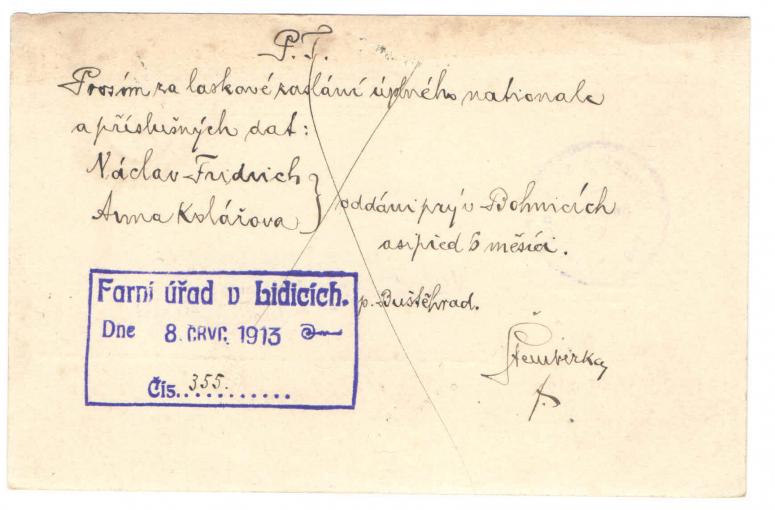 P. T.
Prosím za laskavé zaslání úplného nationale
a příslušných dat:
Václav Fridrich
Anna Kolářova
oddáni prý v Bohnicích
asi před 6 měsíci.
Farní úřad v Lidicích.
Dne 8. ČRVC. 1913
Čís. 355.
p. Buštěhrad.
Štemberka
f.